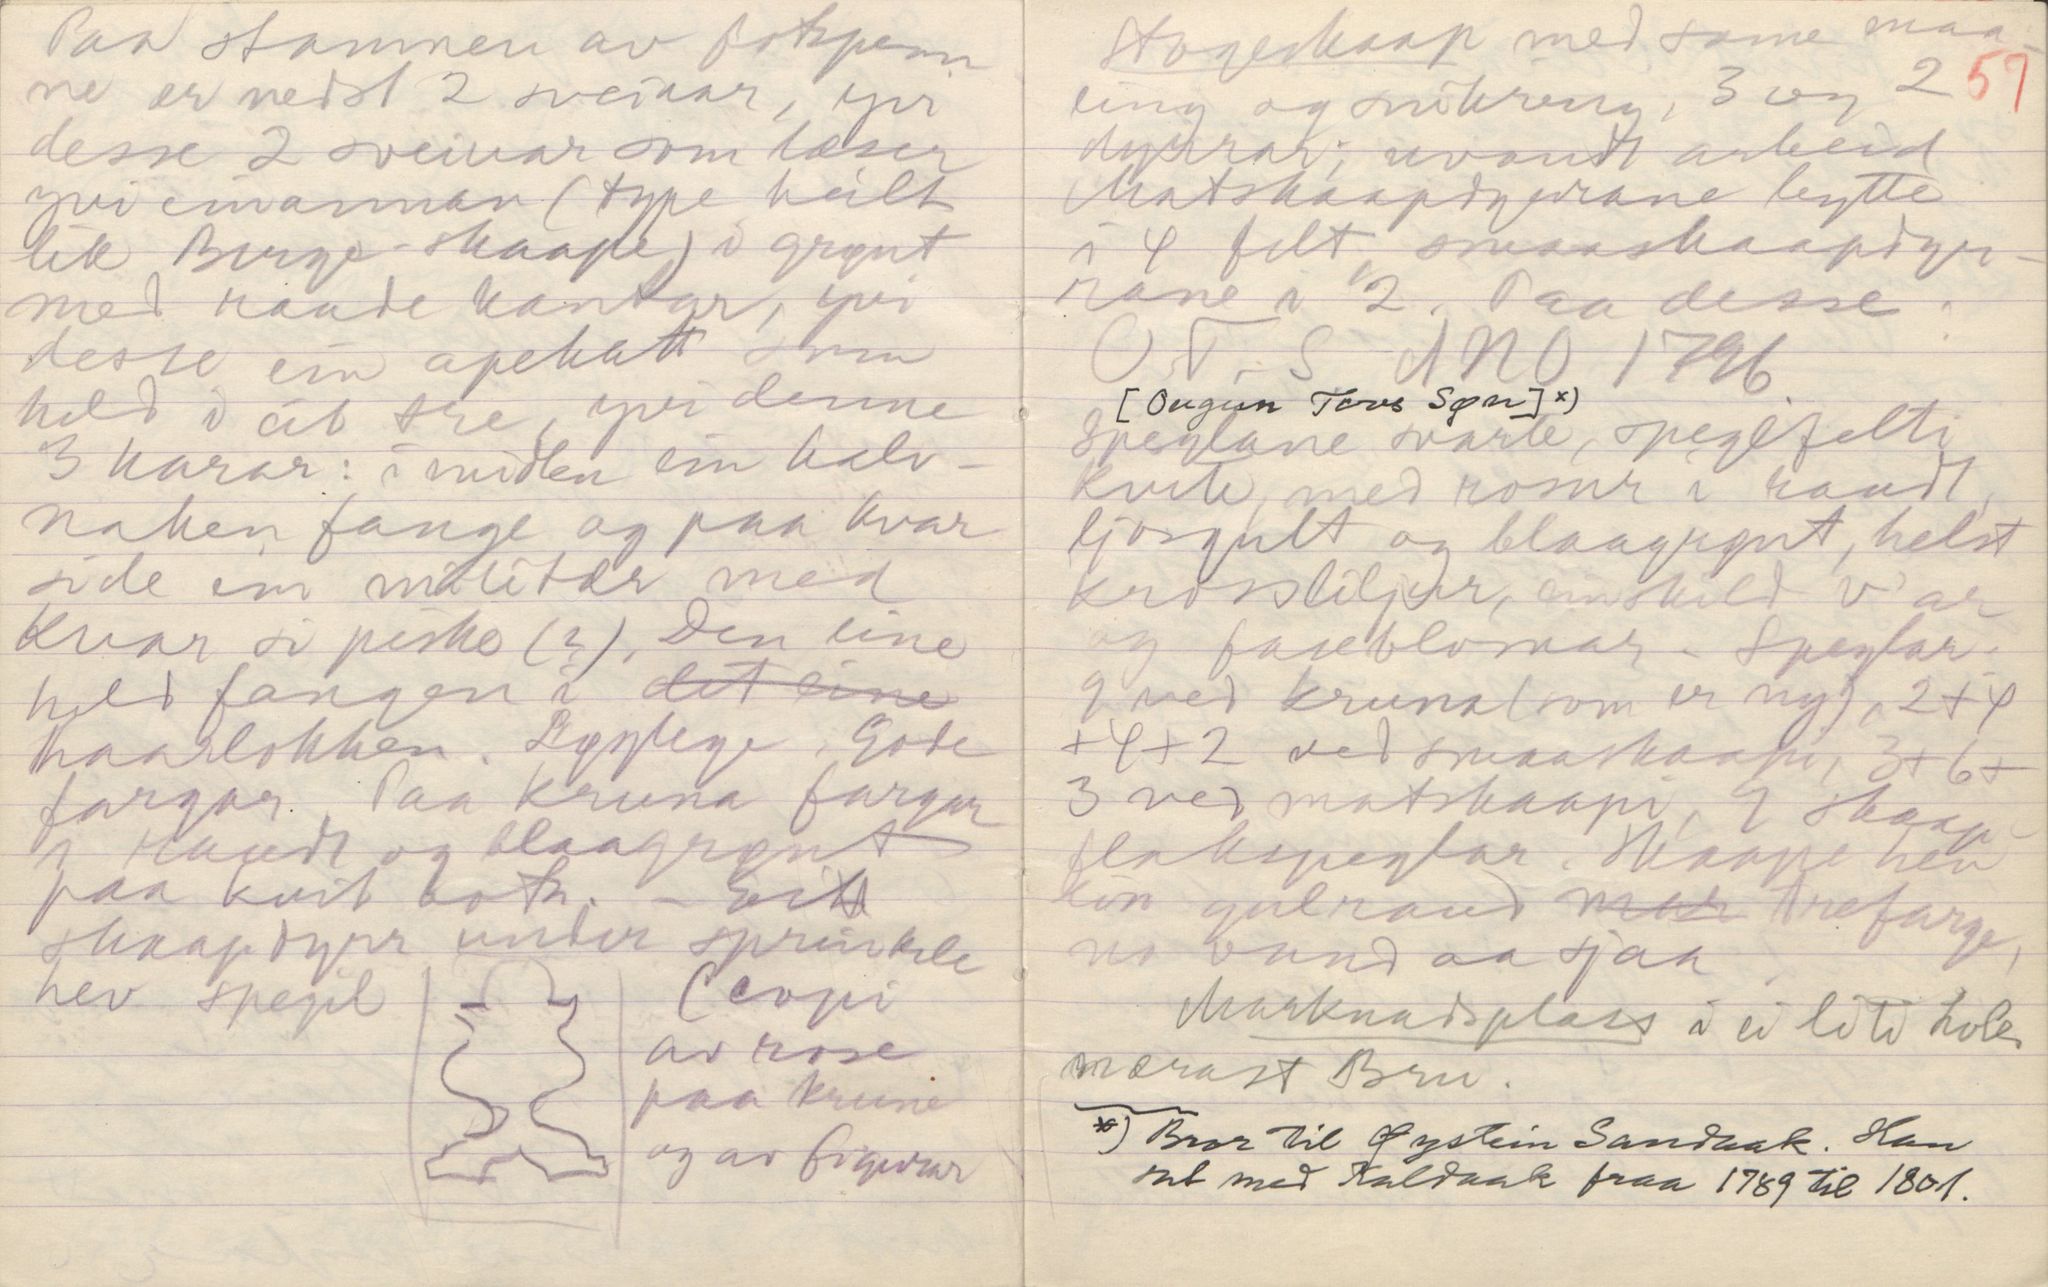 Paa stammen av fotspenn
ne er nedst 2 sveivar, yvi
desse 2 sveivar som læser
yvi einannan (type heilt
lik Burge-skaape) i grønt
med raude kantar, yvi
desse ein apekatt som
held i eit tre, yvi denne
3 karar: i midten ein halv-
naken fange og paa kvar
side ein militær med
kvar si piske (?). Den eine
held fangen i det eine
haarlokken. Gode
fargar. Paa kruna fargar
i raudt og blaagrønt
paa kvit botn. – Eitt
skaapdyrr under sprinkle
hev spegil
(Copi
av rose
paa krune
og av figurar
Stogeskaap med same maa-
57
ling og snikring, 3 og 2
dyrrar; uvandt arbeid
Matskaapdyrrane bytte
i 4 felt, smaaskaapdyr-
rane i 2. Paa desse:
O.T.S ANO 1796
[Ougun Tovs Søn] *)
Speglane svarte, spegilfelti
kvite, med rosur i raudt,
ljosgult og blaagrønt, helst
krossliljur, einskild v'ar
og faseblomar. – Speglar:
9 ved kruna (som er ny), 2+4
+4+2 ved smaaskaapi, 3+6+
3 ved matskaapi, 9 skaap-
flakspeglar. Skaape hev
ein gulraud mar trefarge,
no vand aa sjaa.
Marknadsplass i ei liti hole
nærast Bru.
*) Bror til Øystein Sandaak. Han
sat med Kaldaak fraa 1789 til 1801.